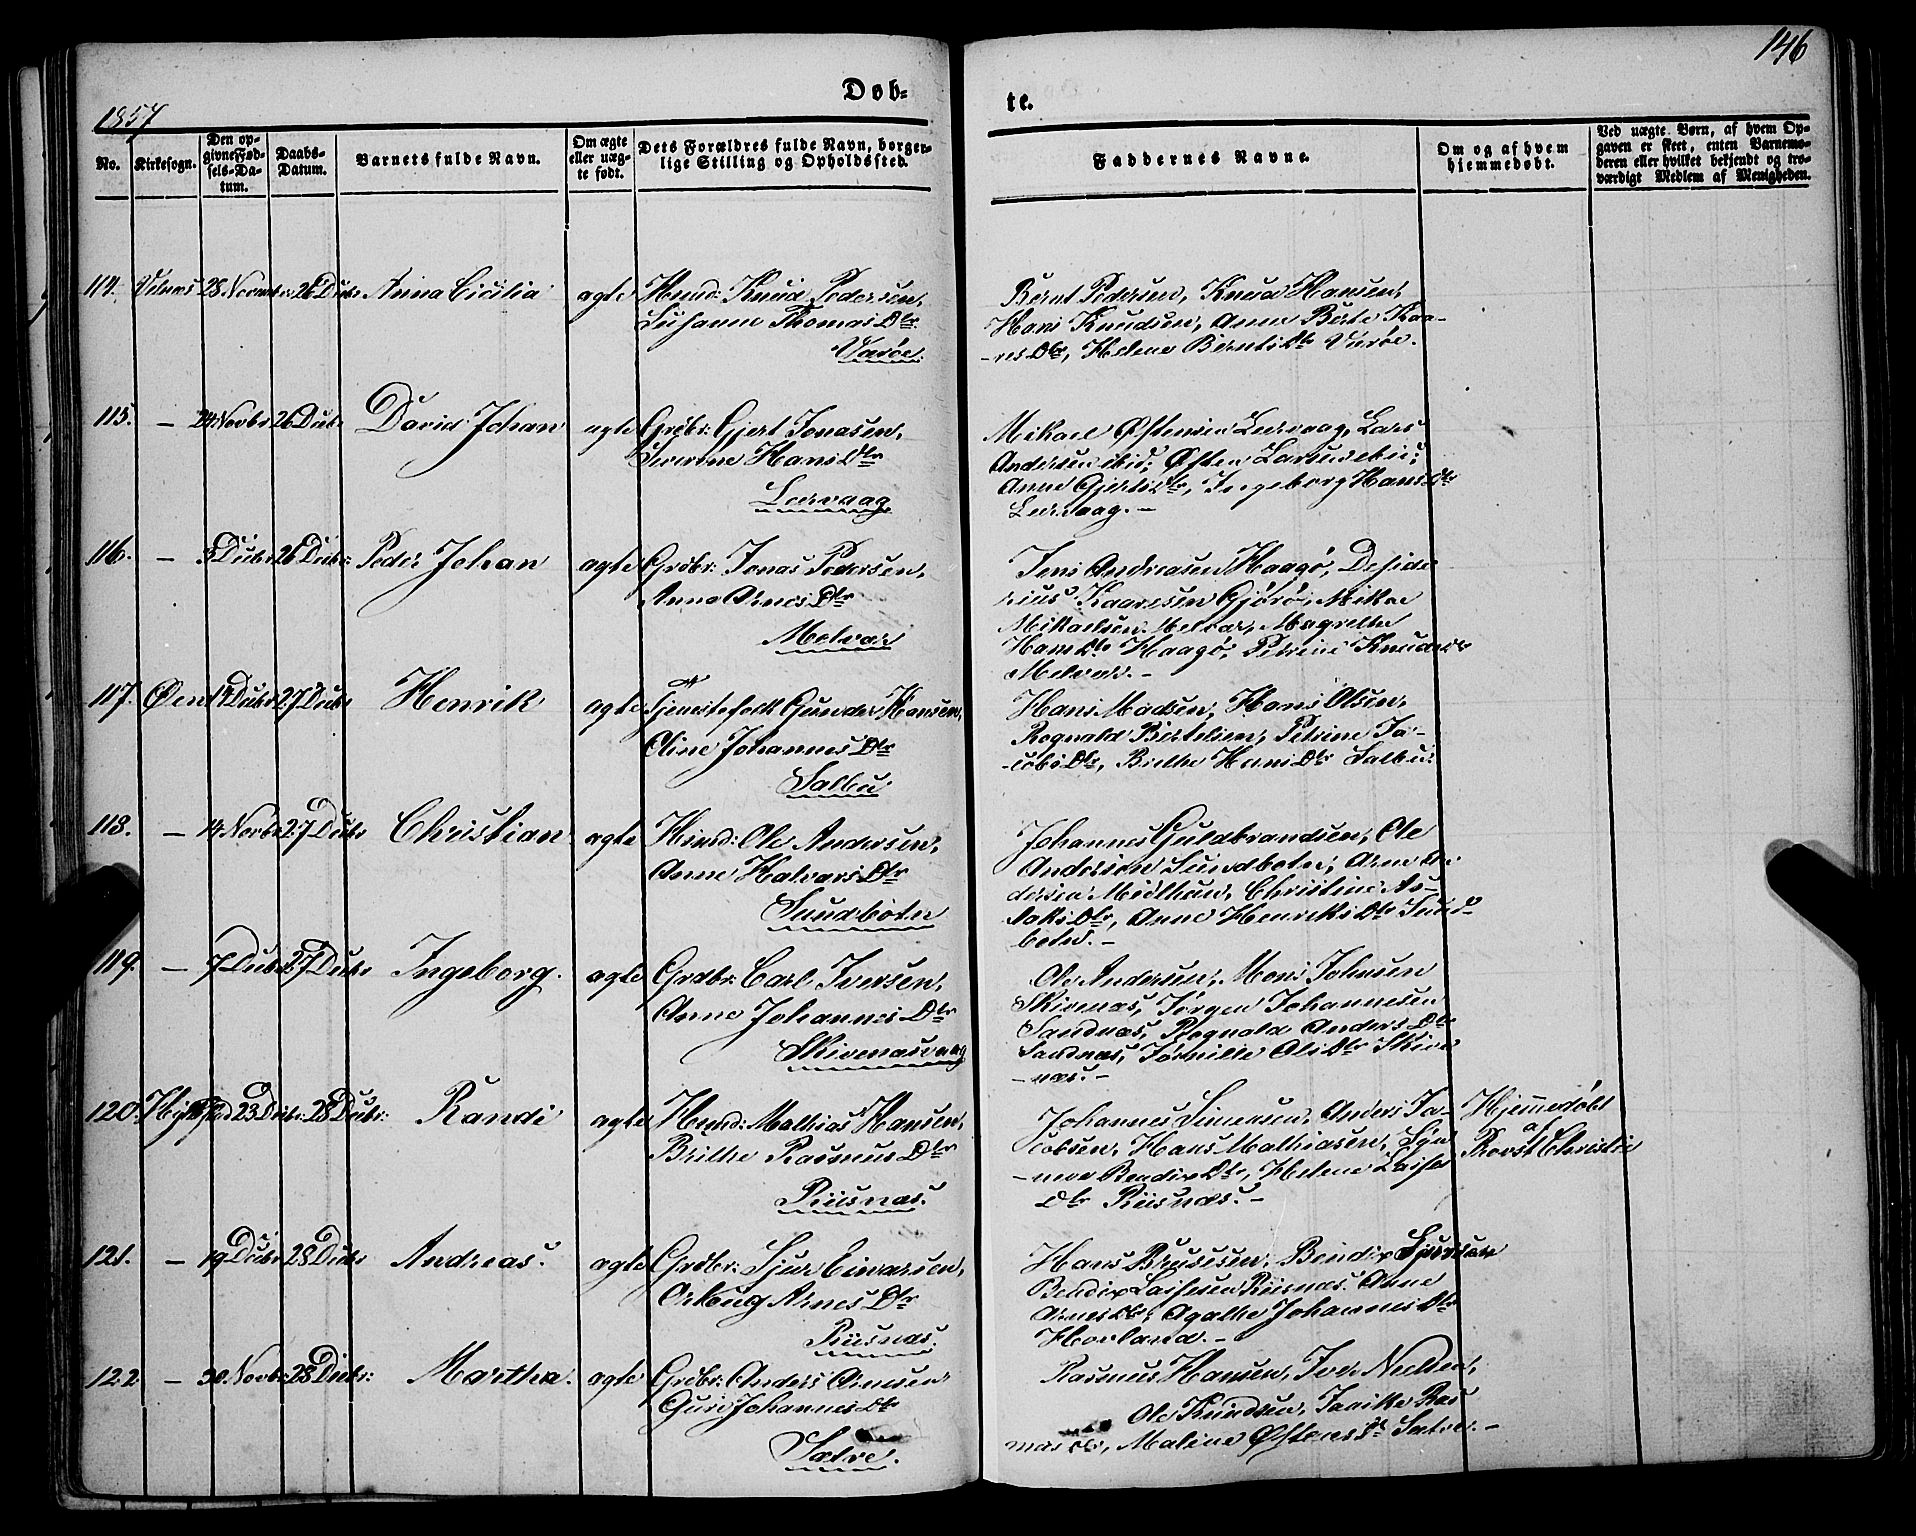 146
1857
Døb-
te.
No.
Kirkesogn.
Den op-
givne Fød-
sels-Da-
tum.
Daabs-
Datum.
Barnets fulde Navn.
Om ægte
eller uæg-
te født.
Dets Forældres fulde Navn, borger-
lige Stilling og Opholdssted.
Faddernes Navne.
Om og af hvem
hjemmedøbt.
Ved uægte Børn, af hvem Op-
gaven er skeet, enten Barnemo-
deren eller hvilket bekjendt og tro-
værdigt Medlem af Menigheden.
114. Vilnæs 28 Novembr 26 Decbr Anna Cicilia ægte Huusmd: Knud Pedersen,
Susanne Thomas Dtr
Værøe.
Bernt Pedersen, Knud Hansen,
Hans Knudsen, Anne Berte Kaa-
-res Dtr, Helene Bernts Dtr Værøe.
115. — 24 Novbr 26 Decbr David Johan ægte Grdbr: Gjert Jonasen,
Severine Hans Dtr
Leervaag
Mikael Østensen Leervaag, Lars
Andersen ibid; Østen Larsen ibid;
Anne Gjerts Dtr, Ingeborg Hans Dtr
Leervaag. —
116. — 5 Decbr 26 Decbr: Peder Johan ægte Grdbr: Jonas Pedersen,
Anne Arnes Dtr
Melvær
Jens Andreasen Haagø, Deside
rius Kaaresen Gjørø, Mikae
Mikaelsen Melvær, Magrethe
Hans Dtr Haagø, Petrine Knuds Dtr
Melvær. —
117. Øen 14 Decbr 27 Decbr Henrik ægte Tjenestefolk Gunder Hansen,
Oline Johannes Dtr
Salbu
Hans Madsen, Hans Olsen,
Rognald Bertelsen, Petrine Ja-
-cobs Dtr, Brithe Hans Dtr Salbu.
118. — 14 Novbr 27 Decbr Christian ægte Huusmd: Ole Andersen,
Anne Halvars Dtr
Sundbotn
Johannes Guldbrandsen, Ole
Andersen Sundbotn, Arne An
dersen Midthun, Christine As-
laks Dtr, Anne Henriks Dtr Sund-
botn. —
119. — 7 Decbr 27 Decbr Ingeborg. ægte Grdbr: Carl Iversen,
Anne Johannes Dtr
Skivenæsvaag
Ole Andersen, Mons Johnsen
Skivenæs, Jørgen Johannesen
Sandnæs, Rognalda Anders Dtr
Sandnæs, Ols Dtr Skive
-næs. —
120. 23 Decbr: 28 Decbr: Randi ægte Huusmd: Mathias Hansen,
Brithe Rasmus Dtr
Riisnæs.
Johannes Simensen, Anders Ja-
cobsen, Hans Mathiasen, Syn
-neve Bendix Dtr, Helene Leifs
Dtr Riisnæs. —
Hjemmedøbt
af
Provst Christie
121. — 19 Decbr 28 Decbr Andreas. ægte Grdbr: Sjur Eivarsen,
Arnes Dtr
Riisnæs.
Hans Brusesen, Bendix Sjursen
Bendix Leifsen Riisnæs. Anne
Arnes Dtr, Agathe Johannes Dtr
Hovland. —
122 — 30. Novbr 28 Decbr: Martha. ægte Grdbr: Anders Arnesen
Guri Johannes Dtr
Sætre.
Rasmus Hansen, Iver Nielsen,
Ole Knudsen, Ras
mus Dtr, Maline Østens Dtr Sætre. —